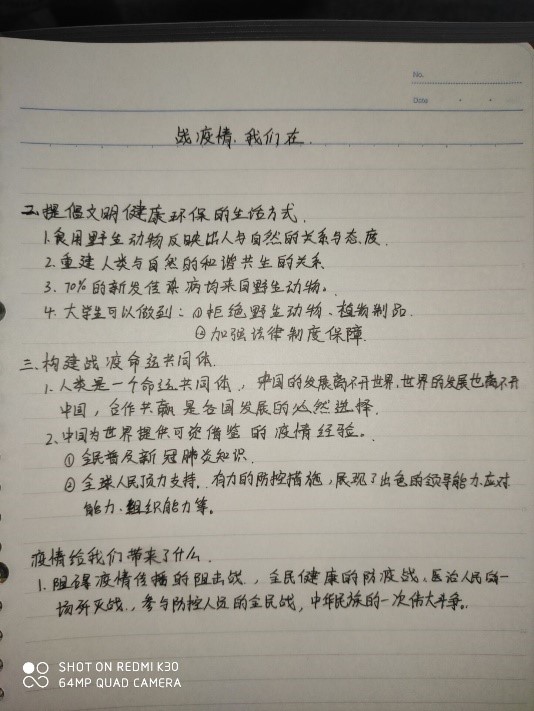 No.
Date
战疫情,我们在.
二、提倡文明健康环保的生活方式.
1. 食用野生动物反映出人与自然的关系与态度.
2. 重建人类与自然的和谐共生的关系
3. 70%的新发传染病均来自野生动物。
4. 大学生可以做到:①拒绝野生动物、植物制品.
②加强法律制度保障.
三、构建战疫命运共同体.
1. 人类是一个命运共同体,中国的发展离不开世界,世界的发展也离不开
中国,合作共赢是各国发展的必然选择.
2. 中国为世界提供可资借鉴的疫情经验。
① 全民普及新冠肺炎知识.
② 全球人民顶力支持.有力的防控措施,展现了出色的领导能力、应对
能力、组织能力等。
疫情给我们带来了什么.
1. 阻碍疫情传播的阻击战,全民健康的防疫战、医治人民的一
场歼灭战,参与防控人员的全民战,中华民族的一次伟大斗争。
SHOT ON REDMI K30
64MP QUAD CAMERA